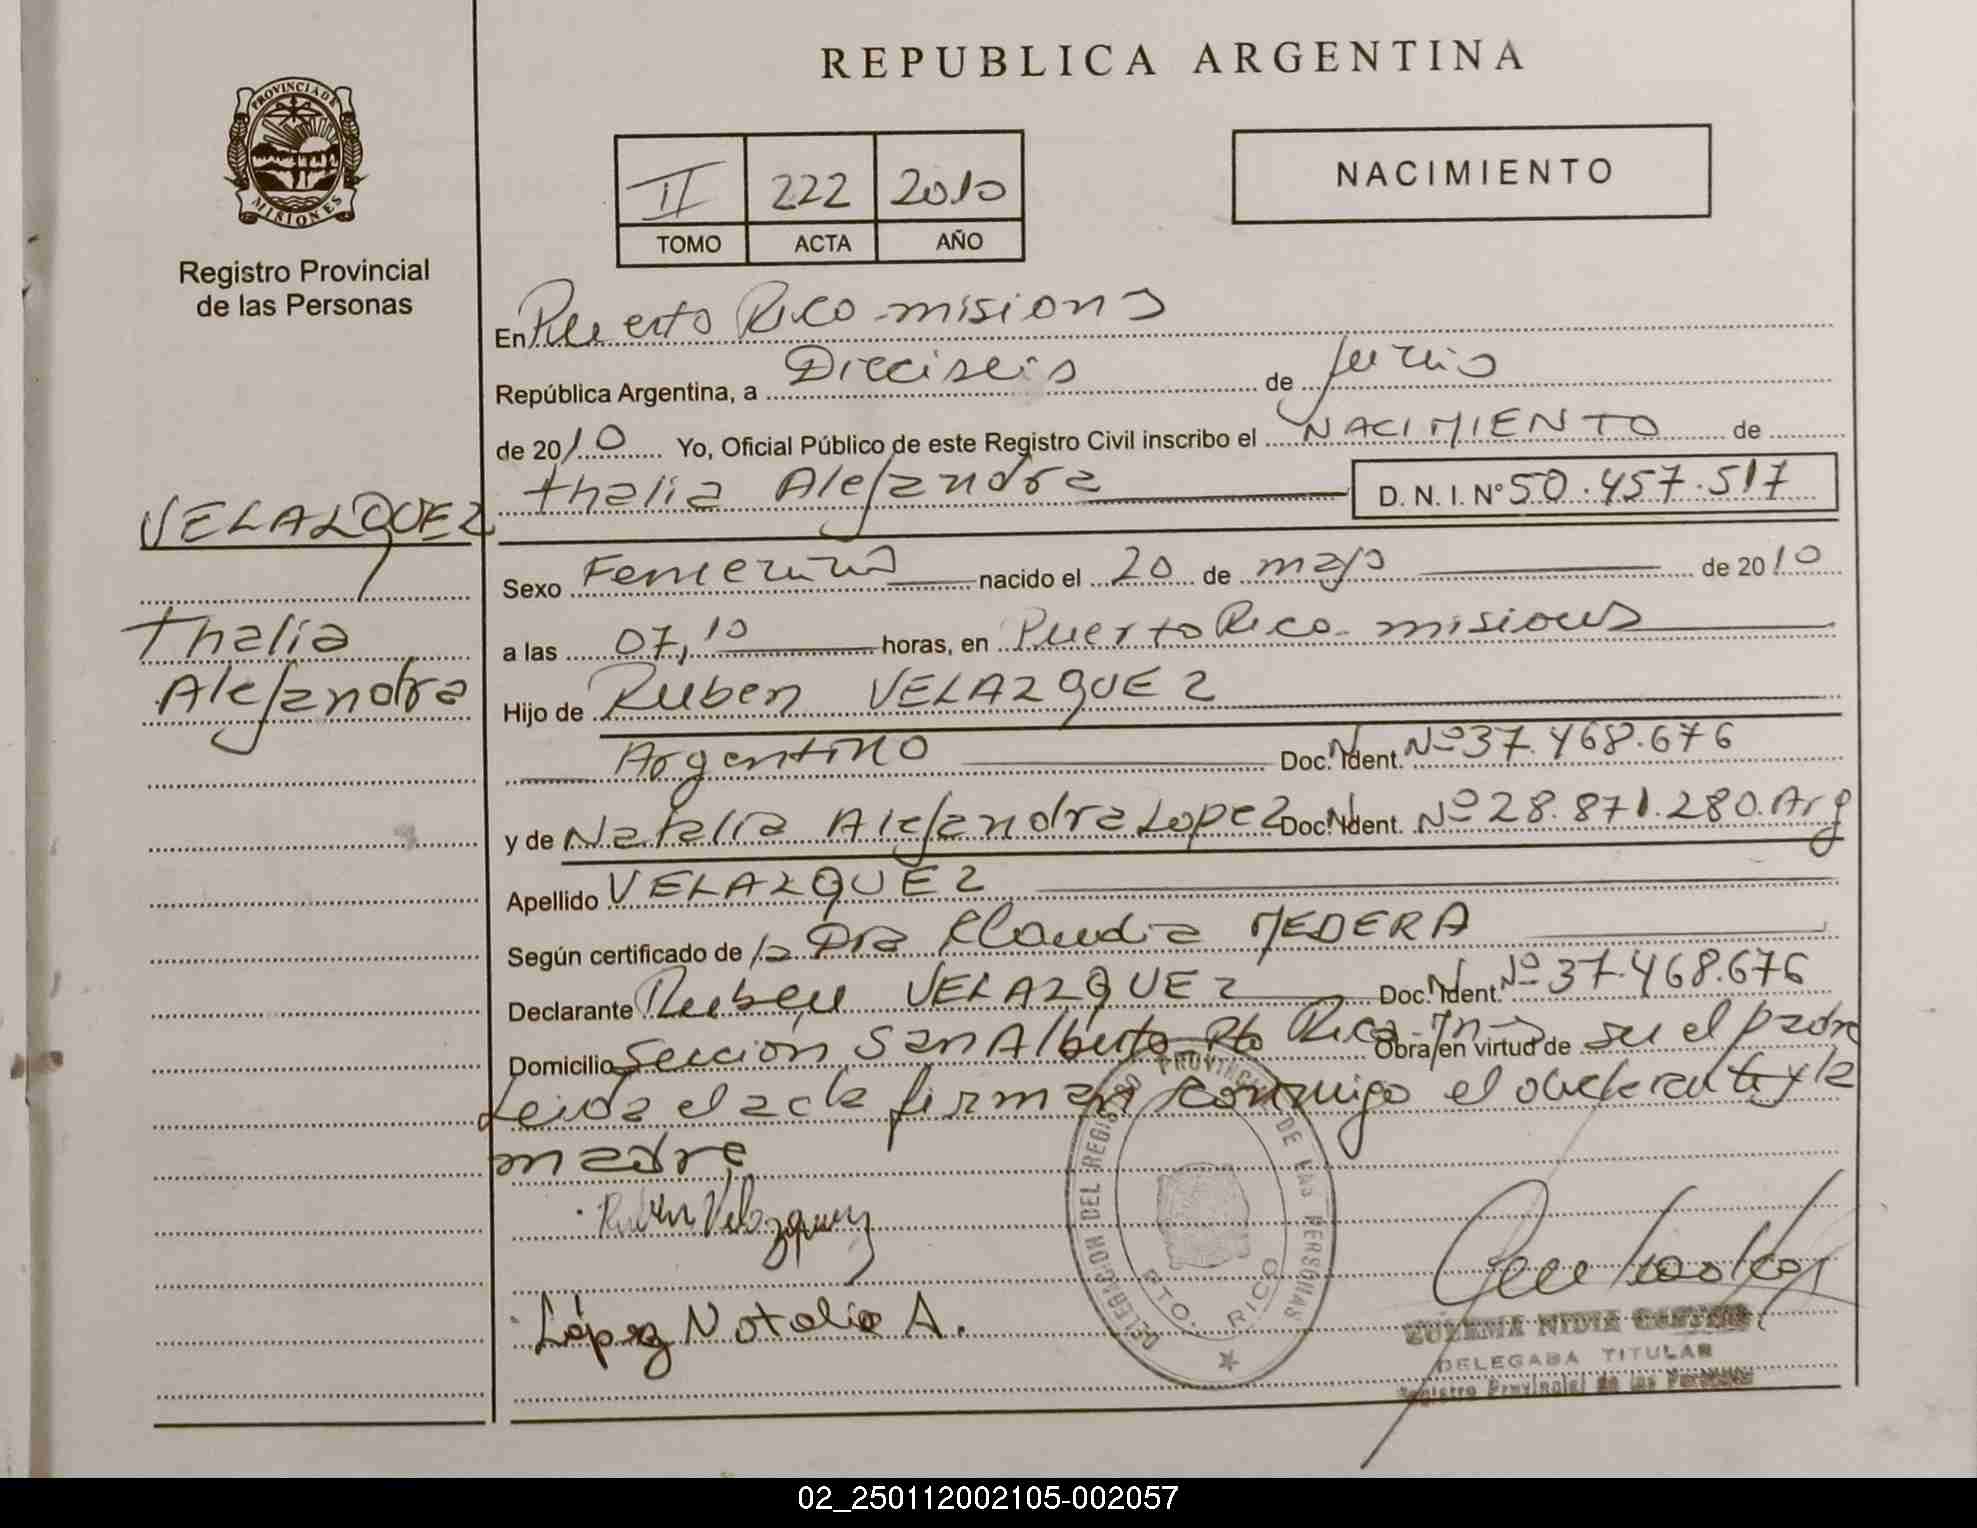 REPUBLICA ARGENTINA
PROVINCIA DE MISIONES
Registro Provincial
de las Personas
II 222 2010
TOMO ACTA AÑO
NACIMIENTO
En Puerto Rico-misiones
República Argentina, a Dieciseis de Junio
de 2010 Yo, Oficial Público de este Registro Civil inscribo el NACIMIENTO de
Thalia Alejandra D. N. I. Nº 50.457.517
VELAZQUEZ
Thalia
Alejandra
Sexo Femenino nacido el 20 de mayo de 2010
a las 07,10 horas, en Puerto Rico-misiones
Hijo de Ruben VELAZQUEZ
Argentino Doc. N. Ident. Nº 37.468.676
y de Natalia Alejandra Lopez Doc. N. Ident. Nº 28.871.280. Arg
Apellido VELAZQUEZ
Según certificado de la Dra Claudia MEDERA
Declarante Ruben VELAZQUEZ Doc. N. Ident. Nº 37.468.676
Domicilio Sección San Alberto Pto Rico Obra en virtud de ser el padre
Leida el acta firman conmigo el declarante y la
madre
Ruben Velazquez
López Natalia A.
DELEGACION DEL REGISTRO PROVINCIAL DE LAS PERSONAS
PTO. RICO
ZULEMA NIDIA
DELEGADA TITULAR
Registro Provincial de las Personas
02_250112002105-002057